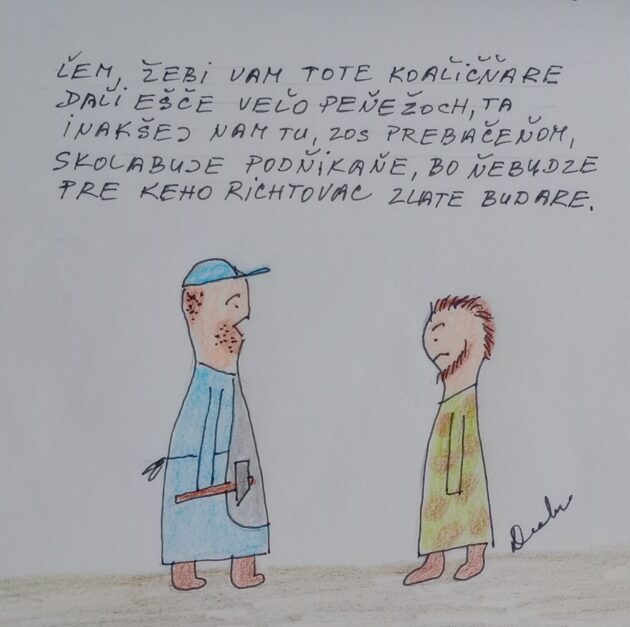 ĽEM, ŽEBI VAM TOTE KOAĽIČŇARE
DAĽI EŠČE VEĽO PEŇEŽOCH, TA
INAKŠEJ NAM TU, ZOS PREBAČEŇOM,
SKOLABUJE PODŇIKAŇE, BO ŇEBUDZE
PRE KEHO RICHTOVAC ZLATE BUDARE.